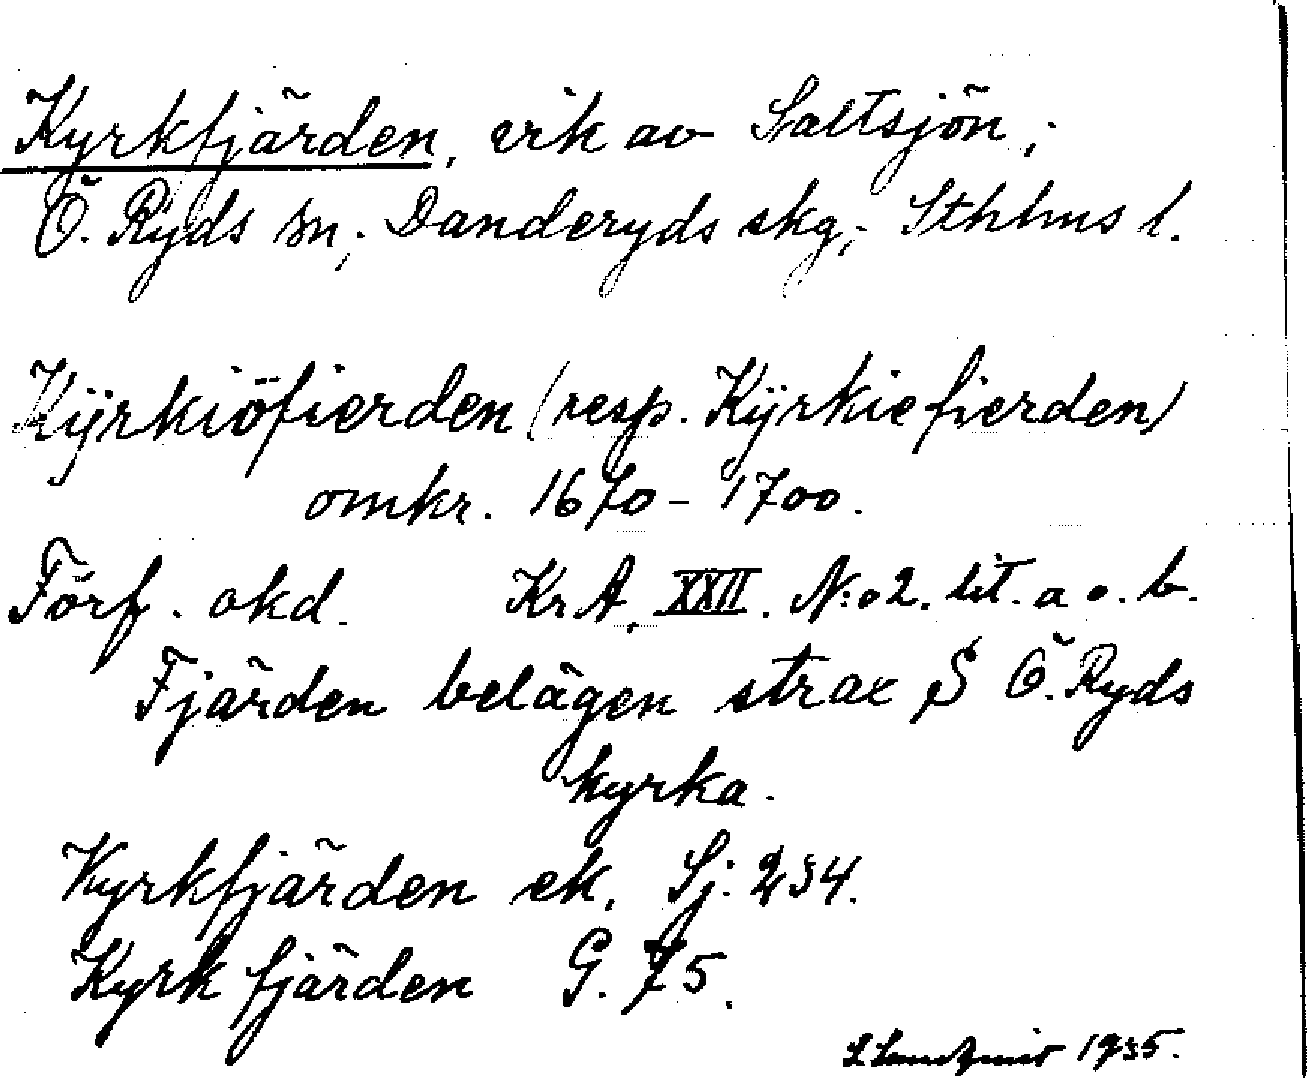 Kyrkfjärden, vik av Saltsjön;
Ö. Ryds sn; Danderyds skg; Sthlms l.
Kÿrkiöfierden (resp. Kÿrkiefierden)
omkr. 1670-1700.
Förf. okd. KrA. XXII. N:o 2. lit. a o. b.
Fjärden belägen strax S Ö. Ryds
kyrka.
Kyrkfjärden ek. Sj. 234.
Kyrkfjärden G. 75.
1935.